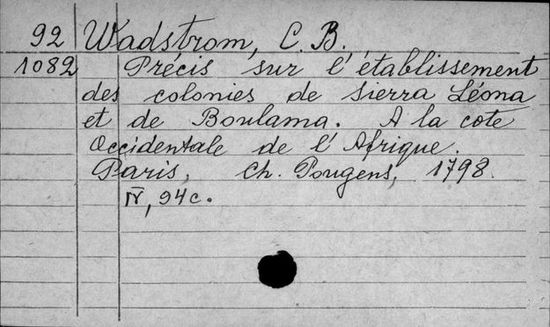 92 Wadström, C. B.
1082 Précis sur l'établissement
des colonies de Sierra Léona
et de Boulama. A la cote
Occidentale de l'Afrique.
Paris, Ch. Pougens, 1798.
IV, 94 c.